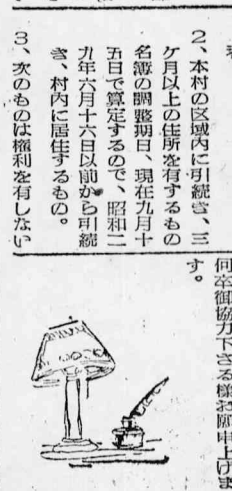 2、本村の区域内に引続き、三
ケ月以上の住所を有するもの
名簿の調整期日、現在九月十
五日で算定するので、昭和二
九年六月十六日以前から引続
き、村内に居住するもの。
3、次のものは権利を有しない
何卒御協力下さる様お願申上げま
す。